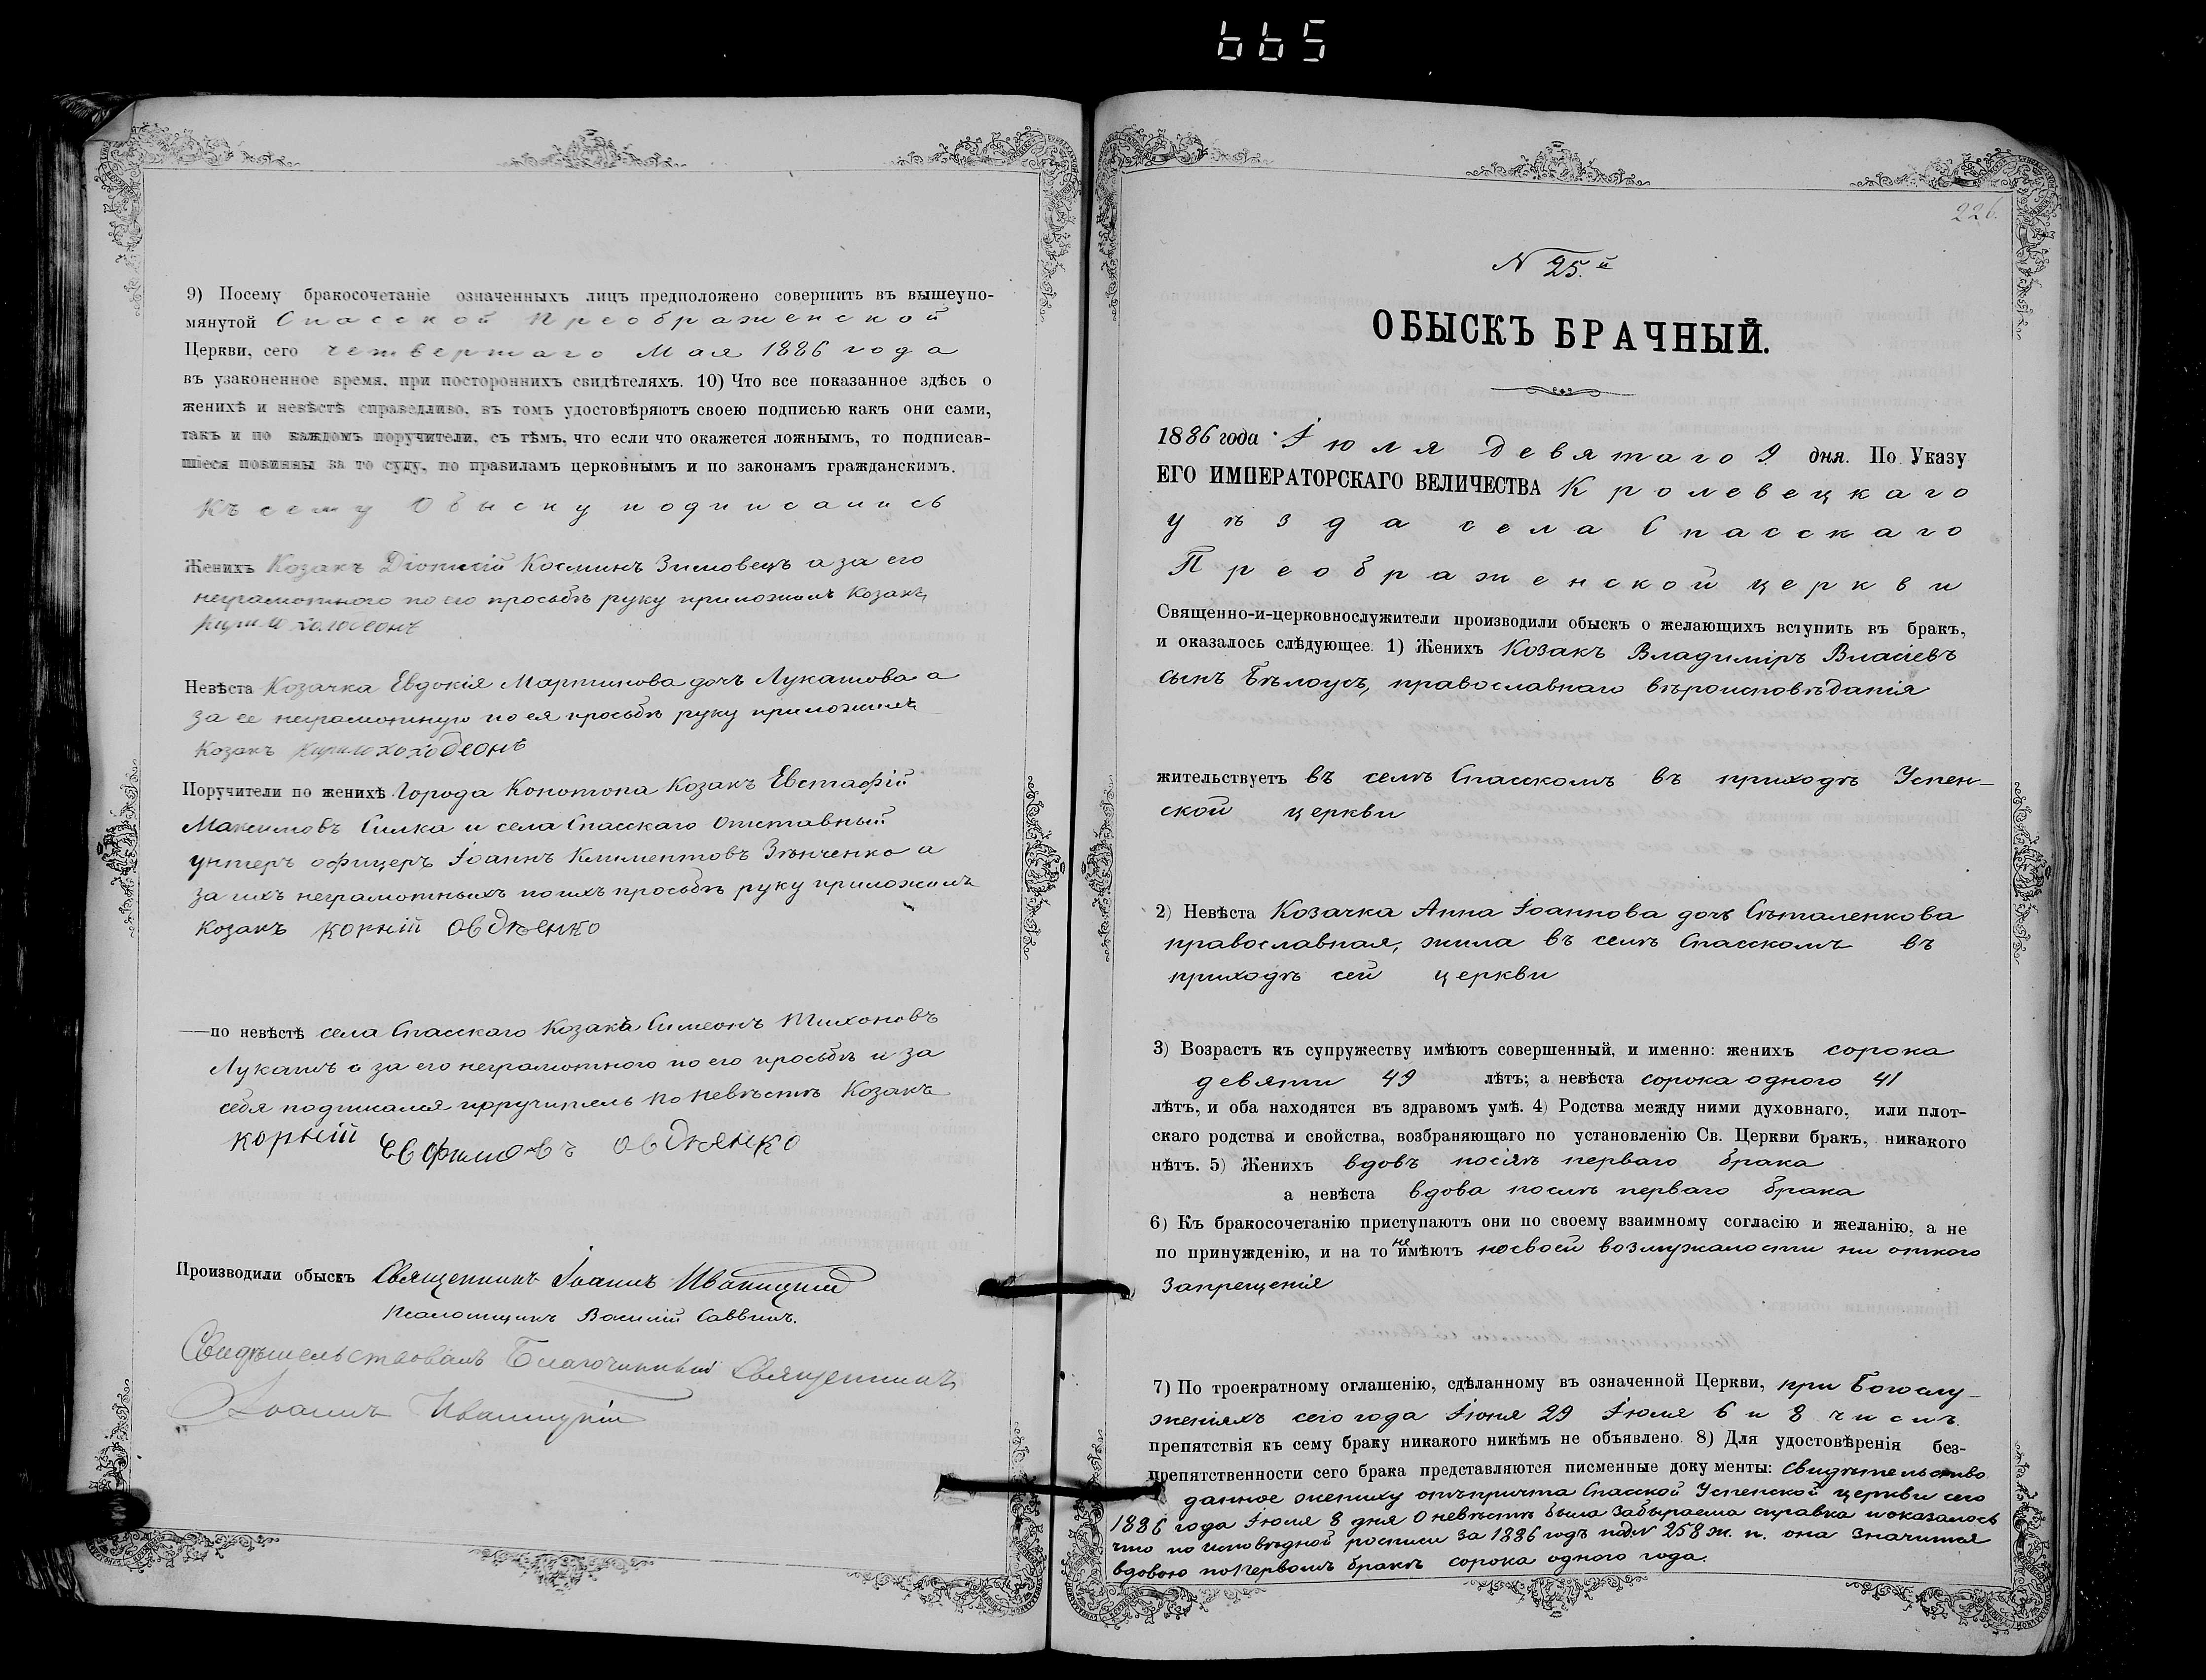 665
9) Посему бракосочетаніе означенныхъ лицъ предположено совершить въ вышеупо-
мянутой Спасской Преображенской
Церкви, сего четвертаго Мая 1886 года
въ узаконенное время, при постороннихъ свидѣтеляхъ. 10) Что все показанное здѣсь о
женихѣ и невѣстѣ справедливо, въ томъ удостовѣряютъ своею подписью какъ они сами,
такъ и по каждомъ поручители, съ тѣмъ, что если что окажется ложнымъ, то подписав-
шіеся повинны за то суду, по правиламъ церковнымъ и по законамъ гражданскимъ.
Къ сему Обыску подписались
Женихъ Козакъ Діонисій Косминъ Зимовецъ а за его
неграмотного по его просьбѣ руку приложилъ Козакъ
Кирило
Невѣста Козачка Евдокія Мартинова дочь Лукашова а
за ее неграмотную по ея просьбѣ руку приложилъ
Козакъ Кирило
Поручители по женихѣ Города Конотопа Козакъ Евстафій
Максимовъ Силка и села Спасскаго Отставный
унтеръ офицеръ Іоаннъ Климентовъ Зѣнченко а
за ихъ неграмотныхъ по ихъ просьбѣ руку приложилъ
Козакъ корній овдѣенко
—по невѣстѣ села Спасскаго Козакъ Симеонъ Тихоновъ
Лукашъ а за его неграмотного по его просьбѣ и за
себя подписался поручитель по невѣстѣ Козакъ
корній Евфимовъ овдѣенко
Производили обыскъ Священникъ Іоаннъ Иваницкій
Псаломщикъ Василій Саввичъ.
Свидѣтельствовалъ Благочинный Священникъ
Іоаннъ Иваницкій
226.
N 25.й
ОБЫСКЪ БРАЧНЫЙ.
1886 года Іюля девятаго 9 дня. По Указу
ЕГО ИМПЕРАТОРСКАГО ВЕЛИЧЕСТВА Кролевецкаго
уѣзда села Спасскаго
Преображенской церкви
Священно-и-церковнослужители производили обыскъ о желающихъ вступить въ бракъ,
и оказалось слѣдующее. 1) Женихъ Козакъ Владиміръ Власіевъ
сынъ Бѣлоусъ, православнаго вѣроисповѣданія
жительствуетъ въ селѣ Спасскомъ въ приходѣ Успен-
ской церкви
2) Невѣста Козачка Анна Іоаннова дочь Сѣталенкова
православная, жила въ селѣ Спасскомъ въ
приходѣ сей церкви
3) Возрастъ къ супружеству имѣютъ совершенный, и именно: женихъ сорока
девяти 49 лѣтъ; а невѣста сорока одного 41
лѣтъ, и оба находятся въ здравомъ умѣ. 4) Родства между ними духовнаго, или плот-
скаго родства и свойства, возбраняющаго по установленію Св. Церкви бракъ, никакого
нѣтъ. 5) Женихъ вдовъ послѣ перваго брака
а невѣста вдова послѣ перваго брака
6) Къ бракосочетанію приступаютъ они по своему взаимному согласію и желанію, а не
по принужденію, и на то не имѣютъ по своей возмужалости ни откого
запрещенія
7) По троекратному оглашенію, сдѣланному въ означенной Церкви, при Богослу-
женіяхъ сего года Іюня 29 Іюля 6 и 8 числъ
препятствія къ сему браку никакого никѣмъ не объявлено. 8) Для удостовѣренія без-
препятственности сего брака представляются писменные документы: свидѣтельство
данное жениху отъ причта Спасской Успенской церкви сего
1886 года Іюля 8 дня О невѣстѣ была забыраема справка и оказалось
что по исповѣдной росписи за 1886 годъ под № 258 ж. п. она значится
вдовою по первомъ бракѣ сорока одного года.